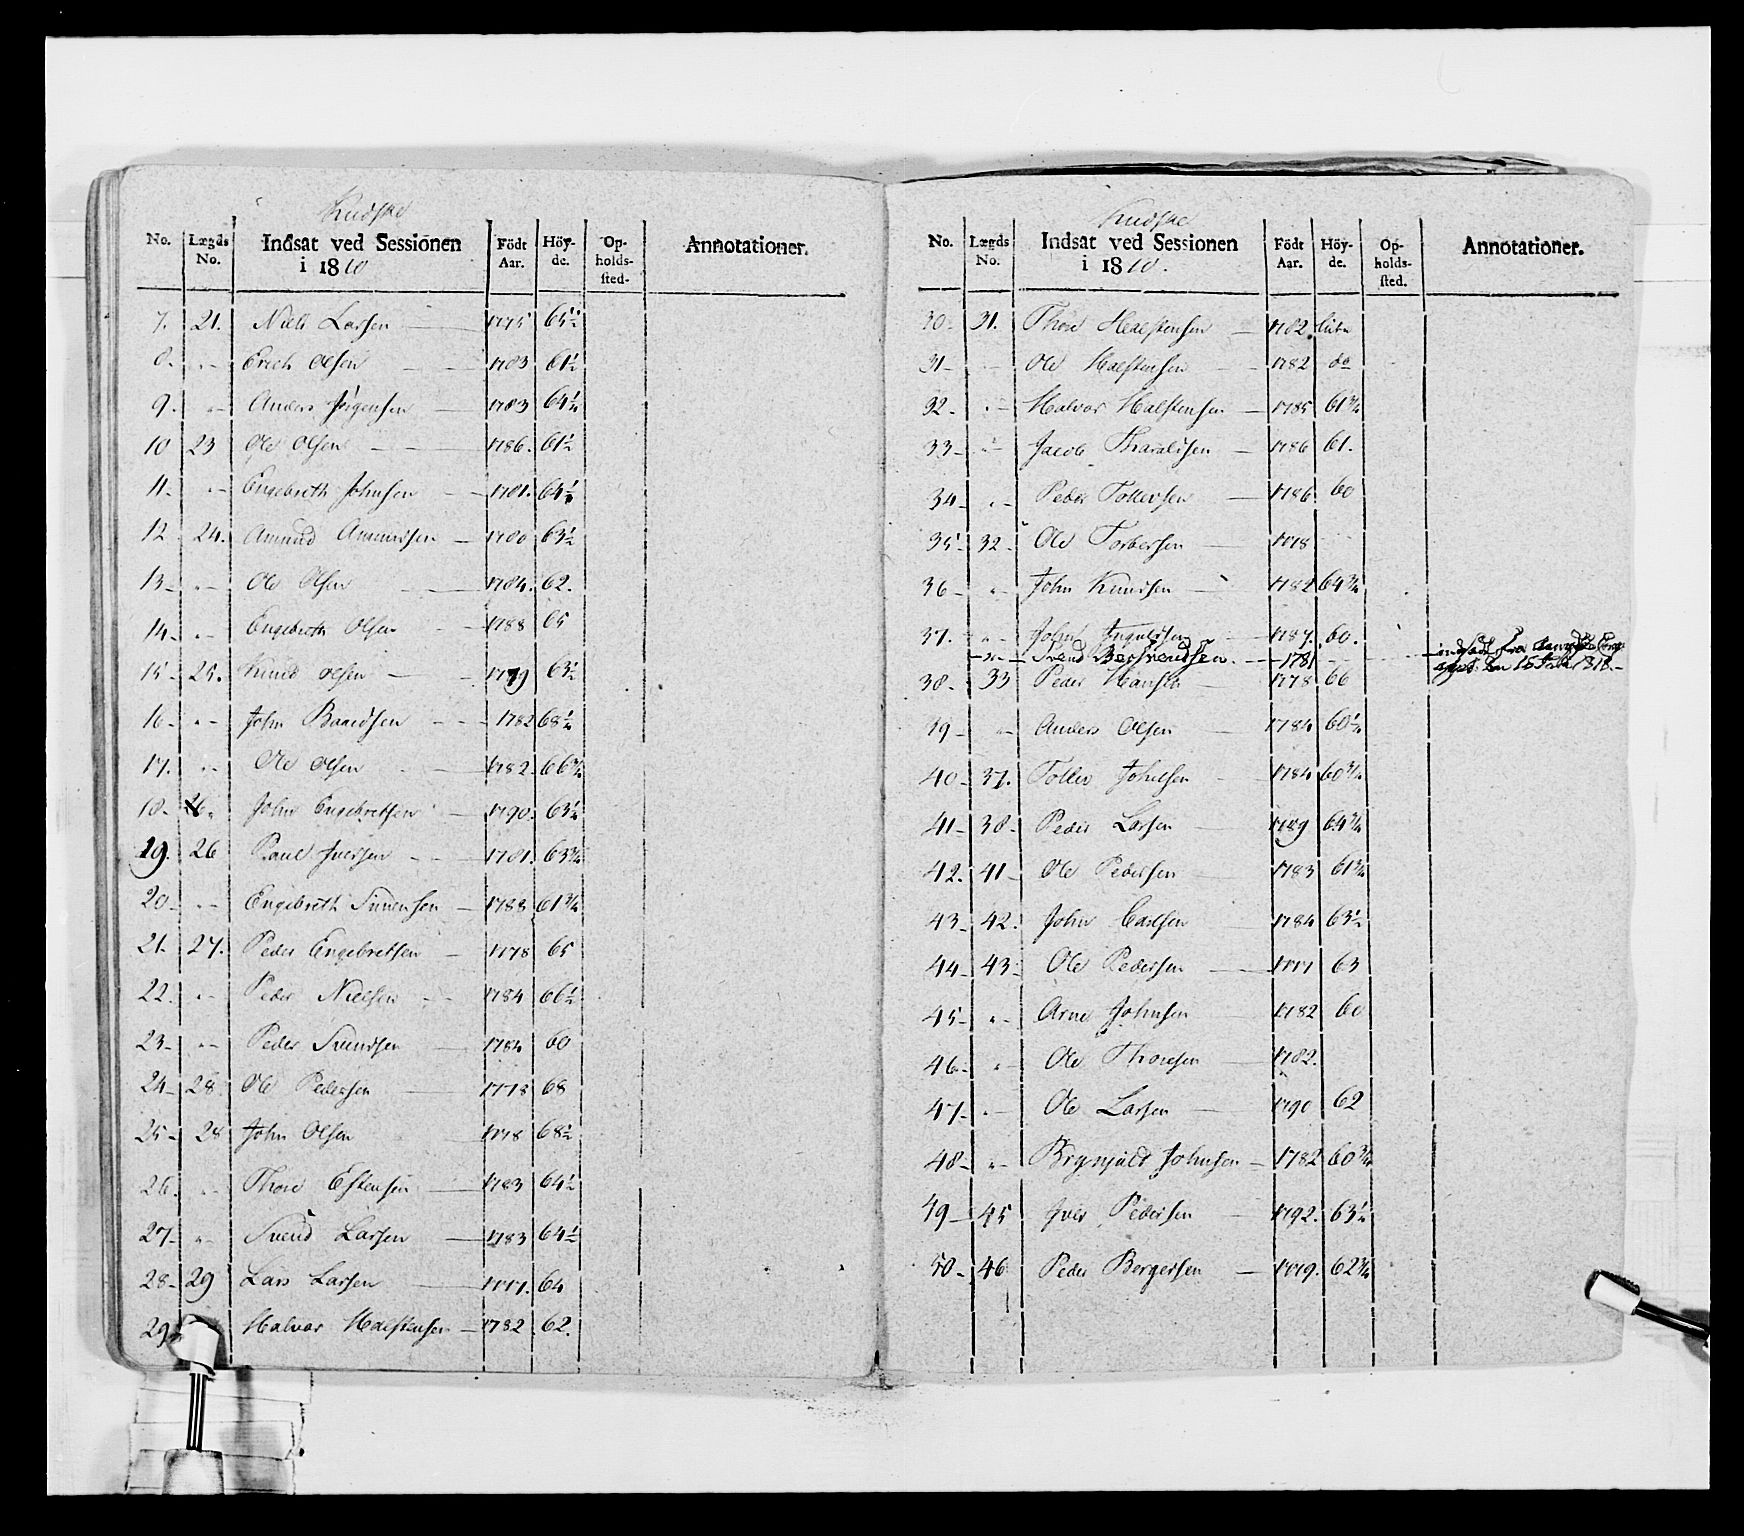 Kudske
No. Lægds No. Indsat ved Sessionen i 1810 Födt Aar. Höyde. Opholdssted. Annotationer.
7. 21. Niels Larsen 1775 65½
8. " Erich Olsen 1783 61½
9. " Anders Jörgensen 1783 64¼
10 23 Ole Olsen 1786. 61½
11. " Engebreth Johnsen 1781. 64½
12 24. Amund Amundsen 1780 63½
13 " Ole Olsen 1784. 62.
14 " Engebreth Olsen 1788 65
15 25. Knud Olsen 1779 63½
16 " John Baardsen 1782 68¼
17. " Ole Olsen 1782. 66¾
18 26. John Engebretsen 1790. 63¼
19. 26 Paul Iversen 1781. 63¾
20 " Engebreth Svensen 1788 61¾
21. 27. Peder Engebretsen 1778 65
22. " Peder Nielsen 1784 66½
23 " Peder Svendsen 1784 60
24 28 Ole Pedersen 1778 68
25 28 John Olsen 1778 68½
26. " Thore Estensen 1783 64½
27 " Svend Larsen 1783 64½
28 29 Lars Larsen 1777. 64
29 Halvor Halstensen 1782 62.
Kudske
No. Lægds No. Indsat ved Sessionen i 1810. Födt Aar. Höyde. Opholdssted. Annotationer.
30 31. Thore Halstensen 1782. liden
31 " Ole Halstensen 1782 do
32 " Halvor Halstensen 1785 61¾
33 " Jacob Tharaldsen 1786 61.
34 " Peder Tollevsen 1786 60
35 32 Ole Torbersen 1778
36 " John Knudsen 1782 64¾
37. " John Ingulfsen 1787. 60.
Svend 1781 indsadt fra den 15 Febr 1818
38 33 Peder Hansen 1778 66
39 " Anders Olsen 1784 60½
40 37. Tollev Johnsen 1784 60¾
41 38 Peder Larsen 1789 64¾
42. 41 Ole Pedersen 1783 61¾
43 42. John Carlsen 1784 63½
44 43 Ole Pedersen 1777 63
45 " Arne Johnsen 1782 60
46 " Ole Thoresen 1782.
47 " Ole Larsen 1790 62
48 " Brynjuld Johnsen 1782 60¾
49 45 Iver Pedersen 1792. 63¼
50 46 Peder Bergersen 1779. 62¾